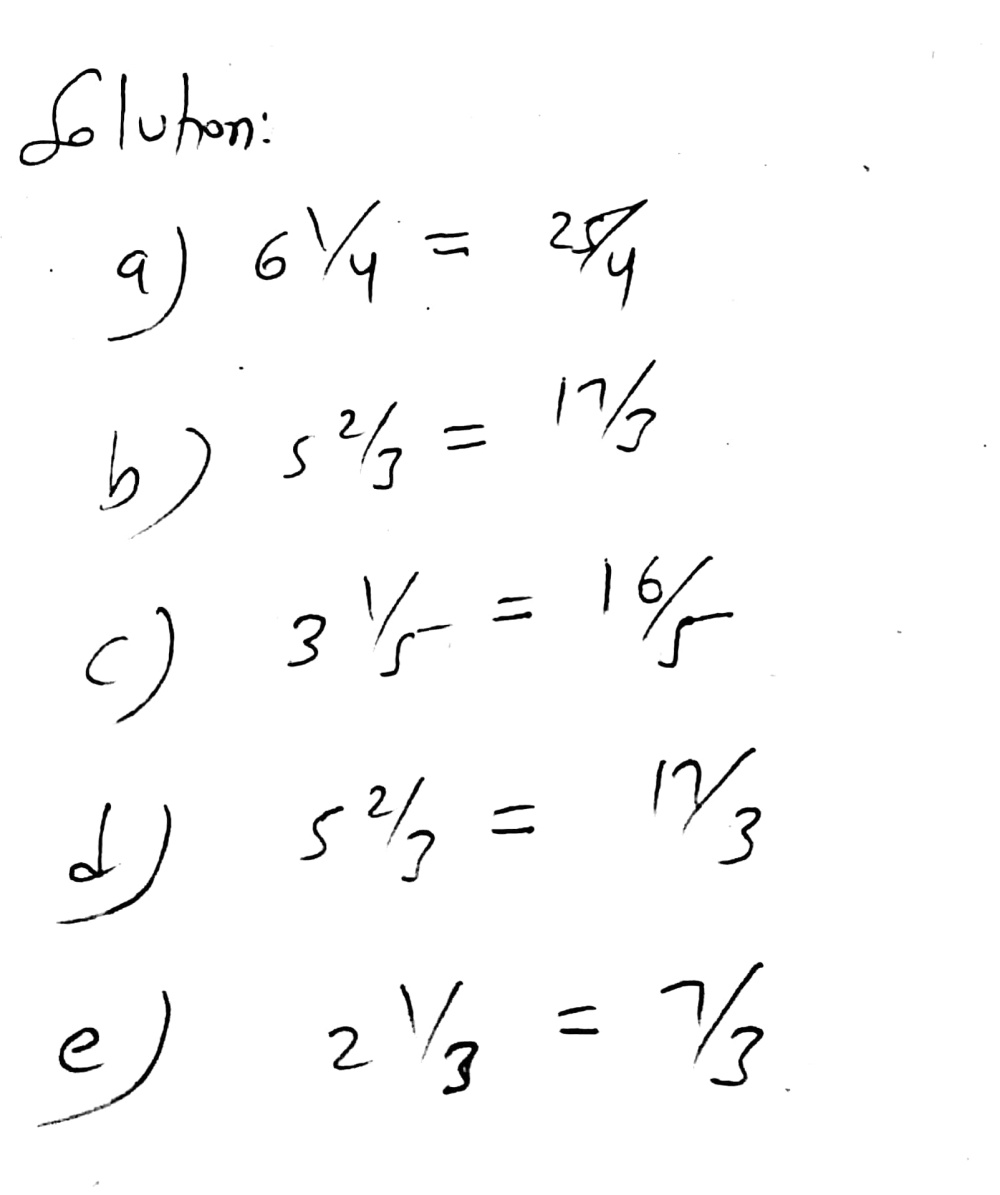 Solution:
a) 6 1/4 = 25/4
b) 5 2/3 = 17/3
c) 3 1/5 = 16/5
d) 5 2/3 = 17/3
e) 2 1/3 = 7/3